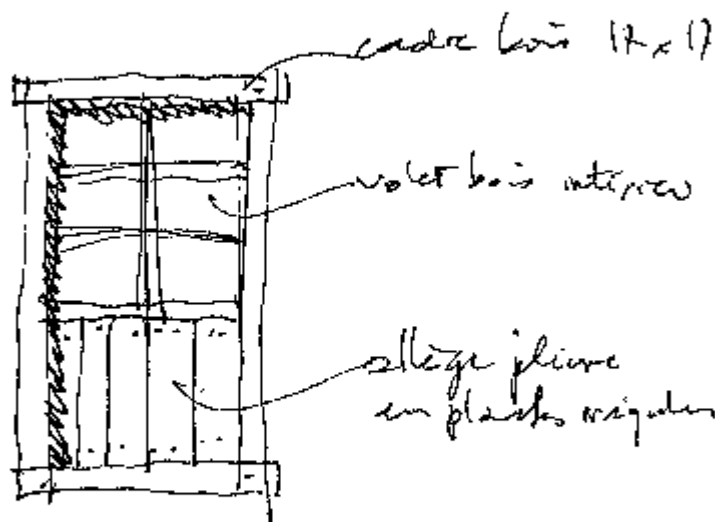 cadre bois 17 x 17
volet bois intérieur
allège pleine
en planches